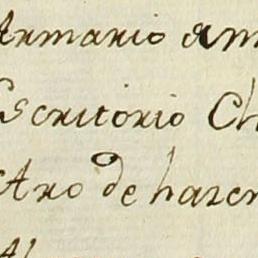 Armario am
Escritorio Ch
Aro de hazer
Al